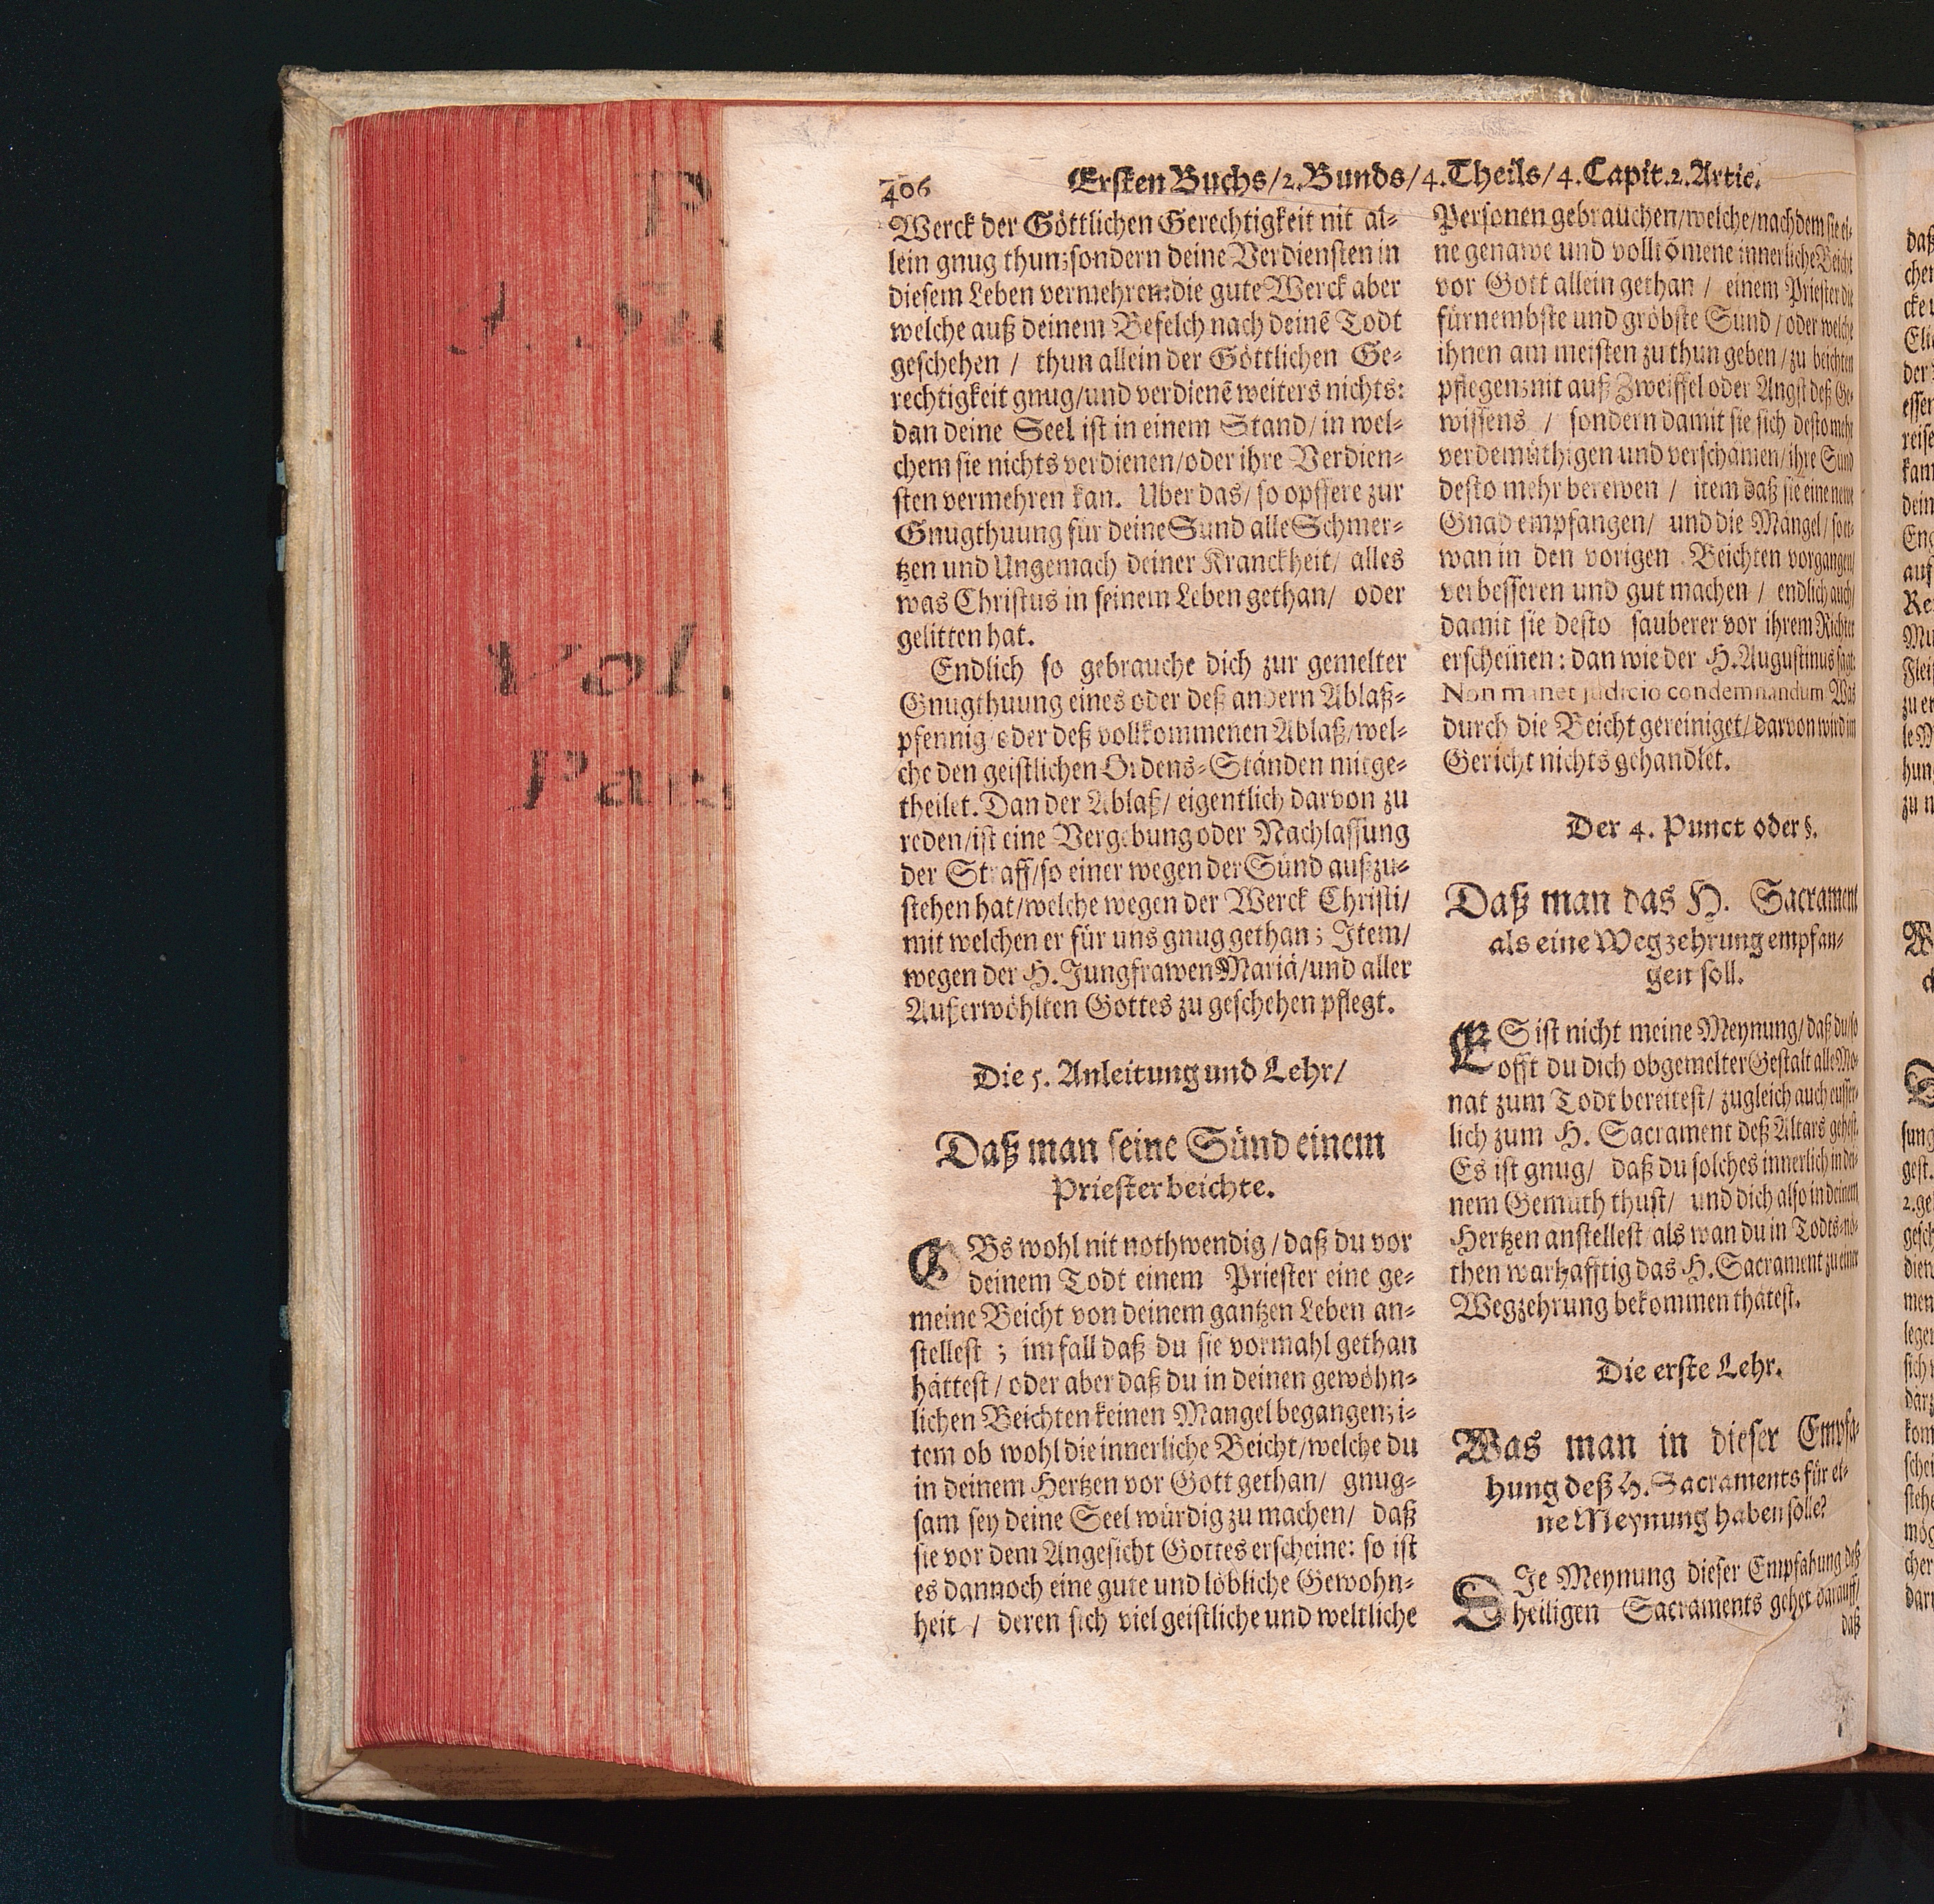 406
Ersten Buchs/2. Bunds/4. Theils/4. Capit. 2. Artic.
Werck der Göttlichen Gerechtigkeit nit al-
lein gnug thun; sondern deine Verdiensten in
diesem Leben vermehren: die gute Werck aber
welche auß deinem Befelch nach deinē Todt
geschehen / thun allein der Göttlichen Ge-
rechtigkeit gnug/und verdienē weiters nichts:
dan deine Seel ist in einem Stand/ in wel-
chem sie nichts verdienen/oder ihre Verdien-
sten vermehren kan. Uber das/ so opffere zur
Gnugthuung für deine Sünd alle Schmer-
tzen und Ungemach deiner Kranckheit/ alles
was Christus in seinem Leben gethan/ oder
gelitten hat.
Endlich so gebrauche dich zur gemelter
Gnugthuung eines oder deß andern Ablaß-
pfennig/oder deß vollkommenen Ablaß/wel-
che den geistlichen Ordens-Ständen mitge-
theilet. Dan der Ablaß/ eigentlich darvon zu
reden/ist eine Vergebung oder Nachlassung
der Straff/so einer wegen der Sünd außzu-
stehen hat/welche wegen der Werck Christi/
mit welchen er für uns gnug gethan; Item/
wegen der H. Jungfrawen Mariä/und aller
Außerwöhlten Gottes zu geschehen pflegt.
Die 5. Anleitung und Lehr/
Daß man seine Sünd einem
Priester beichte.
OBs wohl nit nothwendig/daß du vor
deinem Todt einem Priester eine ge-
meine Beicht von deinem gantzen Leben an-
stellest ; im fall daß du sie vormahl gethan
hättest/ oder aber daß du in deinen gewöhn-
lichen Beichten keinen Mangel begangen; i-
tem ob wohl die innerliche Beicht/welche du
in deinem Hertzen vor Gott gethan/ gnug-
sam sey deine Seel würdig zu machen/ daß
sie vor dem Angesicht Gottes erscheine: so ist
es dannoch eine gute und löbliche Gewohn-
heit / deren sich viel geistliche und weltliche
Personen gebrauchen/welche/nachdem sie ei-
ne genawe und vollkōmene innerliche Beicht
vor Gott allein gethan / einem Priester die
fürnembste und gröbste Sünd / oder welche
ihnen am meisten zu thun geben / zu beichten
pflegen; nit auß Zweiffel oder Angst deß Ge-
wissens / sondern damit sie sich desto mehr
verdemüthigen und verschämen/ ihre Sünd
desto mehr berewen / item daß sie eine newe
Gnad empfangen/ und die Mängel / so et-
wan in den vorigen Beichten vorgangen/
verbesseren und gut machen / endlich auch/
damit sie desto sauberer vor ihrem Richter
erscheinen: dan wie der H. Augustinus sagt:
Non manet judicio condemnandum Was
durch die Beicht gereiniget/ darvon wird im
Gericht nichts gehandlet.
Der 4. Punct oder §.
Daß man das H. Sacrament
als eine Wegzehrung empfan-
gen soll.
ES ist nicht meine Meynung/ daß du/so
offt du dich obgemelter Gestalt alle Mo-
nat zum Todt bereitest/ zugleich auch eusser-
lich zum H. Sacrament deß Altars gehest.
Es ist gnug/ daß du solches innerlich in dei-
nem Gemüth thust/ und dich also in deinem
Hertzen anstellest/als wan du in Todts-nö-
then warhafftig das H. Sacrament zu einer
Wegzehrung bekommen thätest.
Die erste Lehr.
Was man in dieser Empfa-
hung deß H. Sacraments für ei-
ne Meynung haben solle?
DJe Meynung dieser Empfahung deß
heiligen Sacraments gehet darauff/
daß